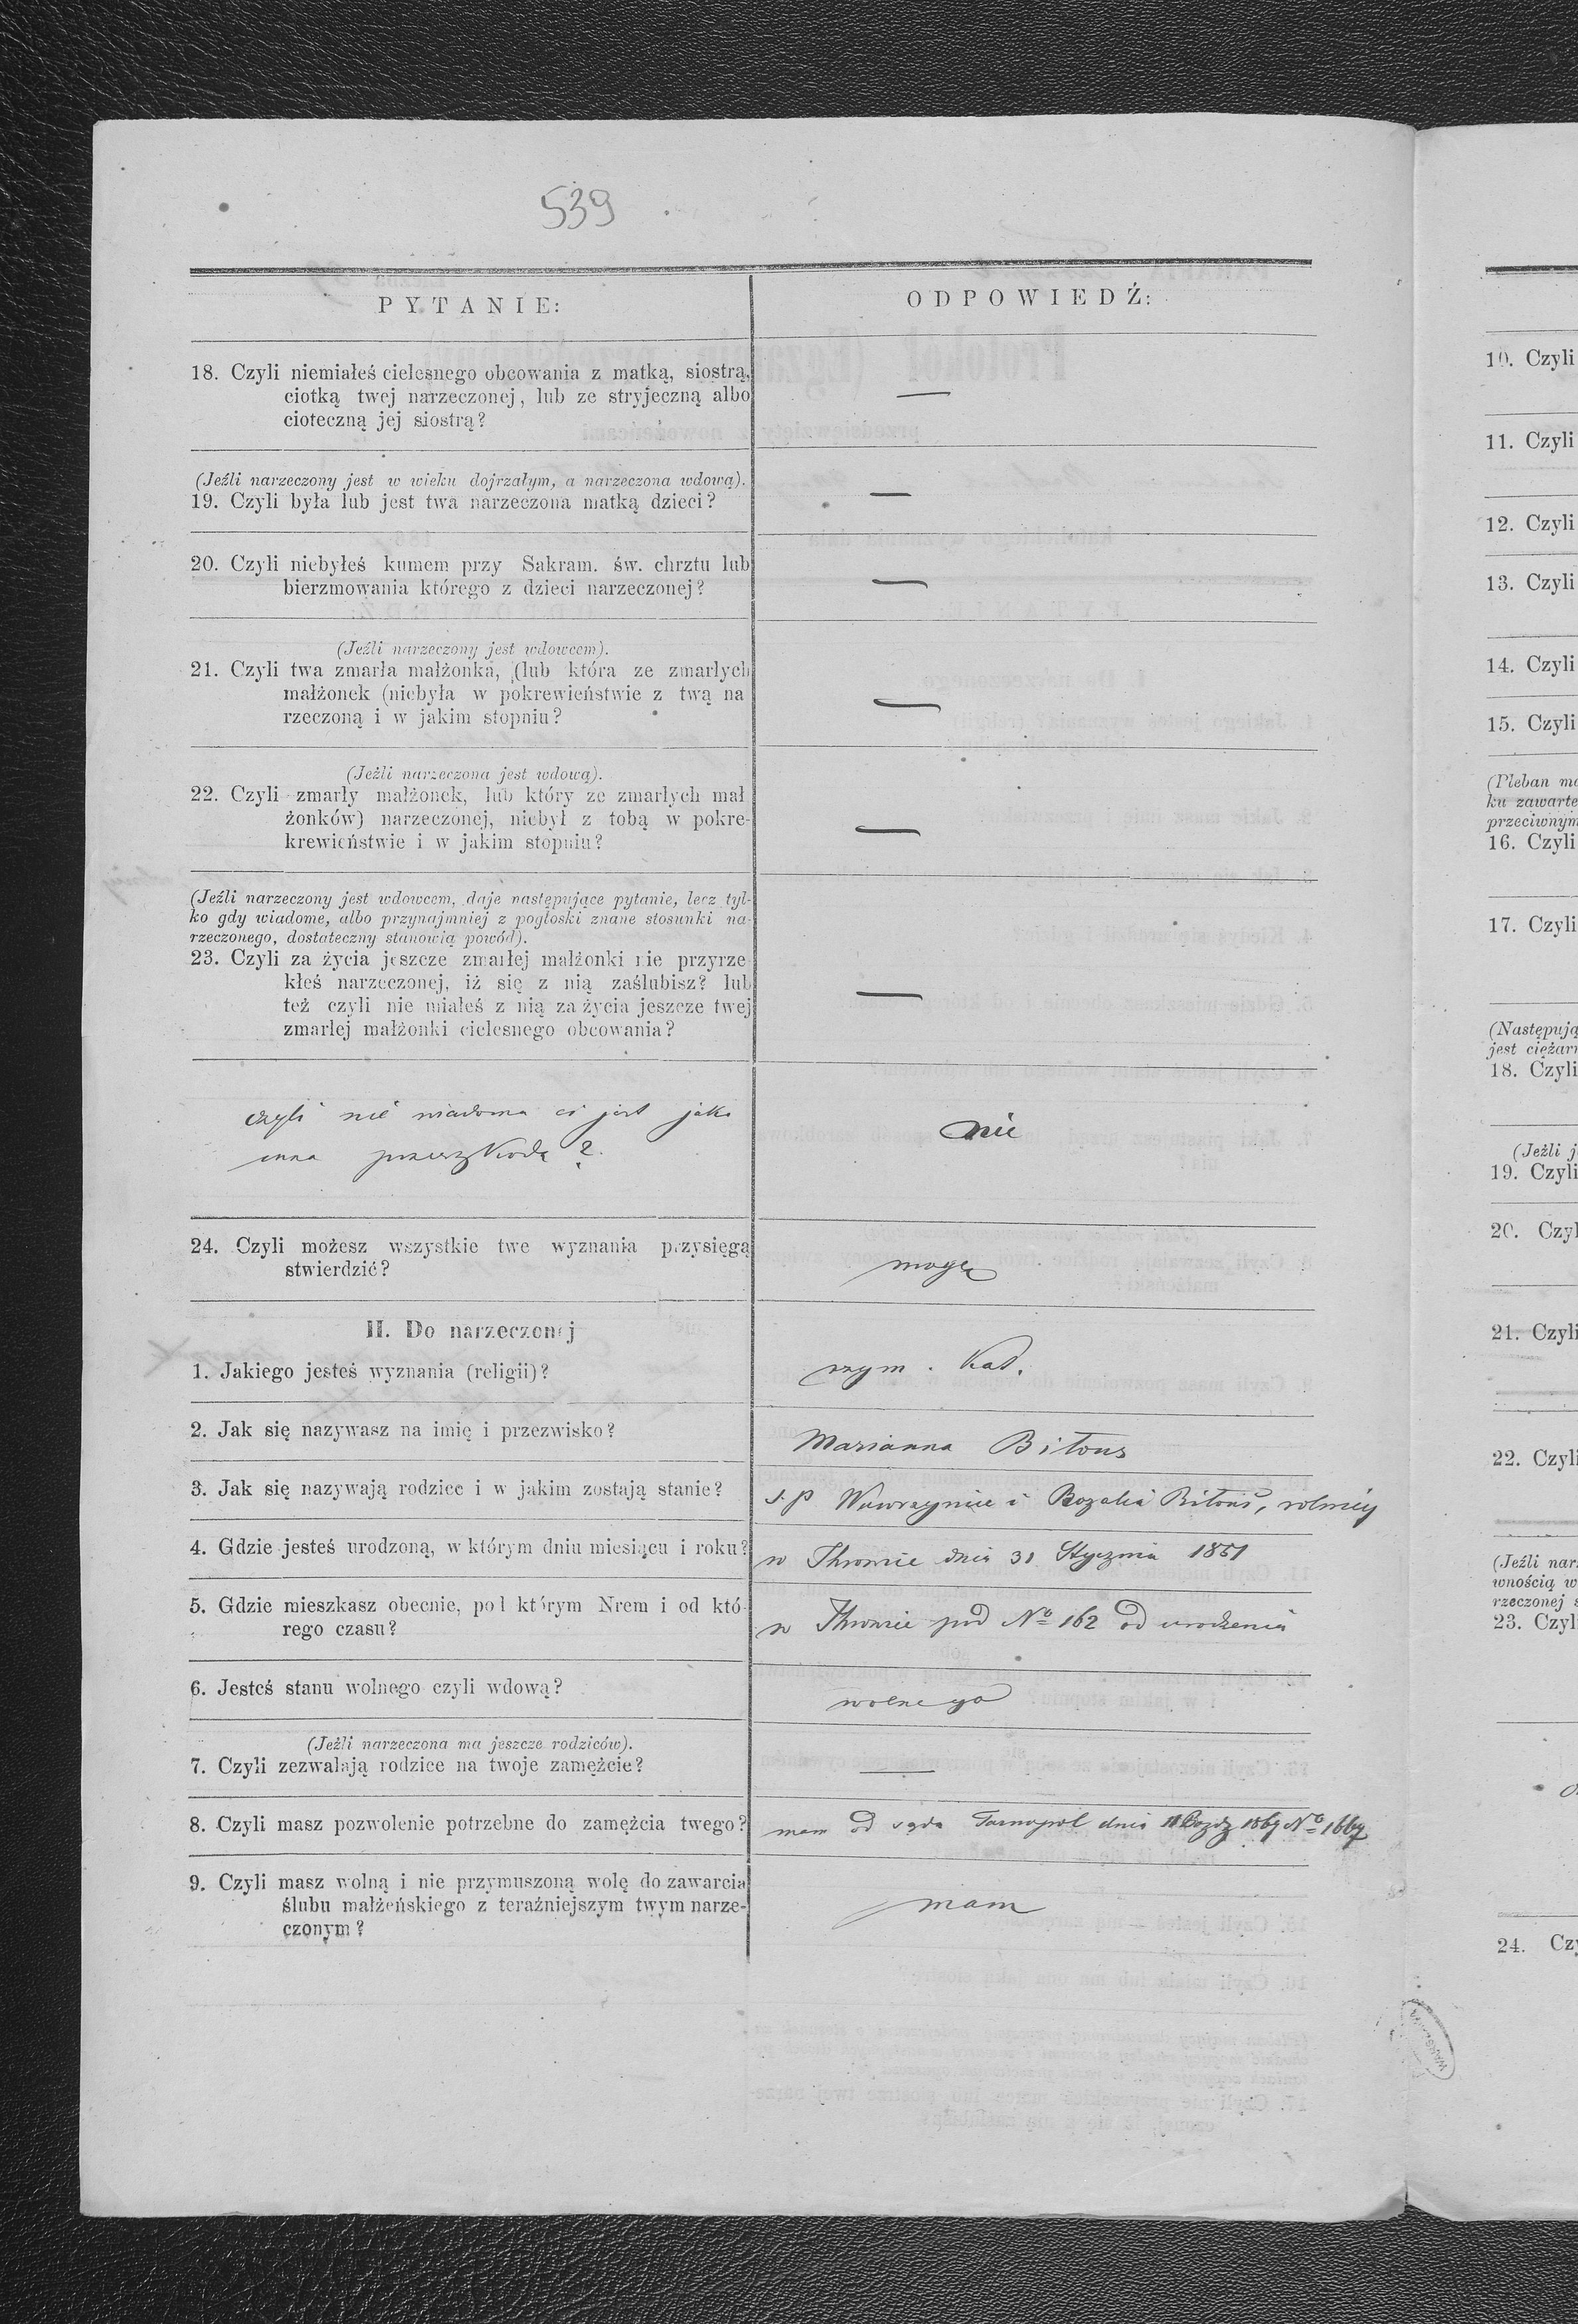 539
PYTANIE:
ODPOWIEDŹ:
18. Czyli niemiałeś cielesnego obcowania z matką, siostrą,
ciotką twej narzeczonej, lub ze stryjeczną albo
cioteczną jej siostrą?
—
(Jeźli narzeczony jest w wieku dojrzałym, a narzeczona wdową).
19. Czyli była lub jest twa narzeczona matką dzieci?
—
20. Czyli niebyłeś kumem przy Sakram. św. chrztu lub
bierzmowania którego z dzieci narzeczonej?
—
(Jeźli narzeczony jest wdowcem).
21. Czyli twa zmarła małżonka, (lub która ze zmarłych
małżonek (niebyła w pokrewieństwie z twą na
rzeczoną i w jakim stopniu?
—
(Jeżli narzeczona jest wdową).
22. Czyli zmarły małżonek, lub który ze zmarłych mał
żonków) narzeczonej, niebył z tobą w pokre-
krewieństwie i w jakim stopniu?
—
(Jeźli narzeczony jest wdowcem, daje następujące pytanie, lecz tyl-
ko gdy wiadome, albo przynajmniej z pogłoski znane stosunki na-
rzeczonego, dostateczny stanowią powód).
23. Czyli za życia jeszcze zmarłej małżonki nie przyrze
kłeś narzeczonej, iż się z nią zaślubisz? lub
też czyli nie miałeś z nią za życia jeszcze twej
zmarłej małżonki cielesnego obcowania?
—
czyli nie wiadoma ci jest jaka
inna przeszkoda?
nie
24. Czyli możesz wszystkie twe wyznania przysięgą
stwierdzić?
mogę
II. Do narzeczonej
1. Jakiego jesteś wyznania (religii)?
rzym. Kat.
2. Jak się nazywasz na imię i przezwisko?
Marianna Biłous
3. Jak się nazywają rodzice i w jakim zostają stanie?
ś.p Wawrzyniec i Rozalia Biłous, rolnicy
4. Gdzie jesteś urodzoną, w którym dniu miesiącu i roku?
dnia 31 Stycznia 1851
5. Gdzie mieszkasz obecnie, pod którym Nrem i od któ-
rego czasu?
pod No 162 od urodzenia
6. Jesteś stanu wolnego czyli wdową?
wolnego
(Jeżli narzeczona ma jeszcze rodziców).
7. Czyli zezwalają rodzice na twoje zamężcie?
—
8. Czyli masz pozwolenie potrzebne do zamężcia twego?
mam od sądu Tarnopol dnia
9. Czyli masz wolną i nie przymuszoną wolę do zawarcia
ślubu małżeńskiego z teraźniejszym twym narze-
czonym?
mam
10. Czyli
11. Czyli
12. Czyli
13. Czyli
14. Czyli
15. Czyli
(Pleban
ku zawarte
przeciwnym
16. Czyli
17. Czyli
(Następują
jest
18. Czyli
(Jeżli
19. Czyli
20.
21. Czyli
22. Czyli
(Jeźli
wnością
rzeczonej
23.
24.